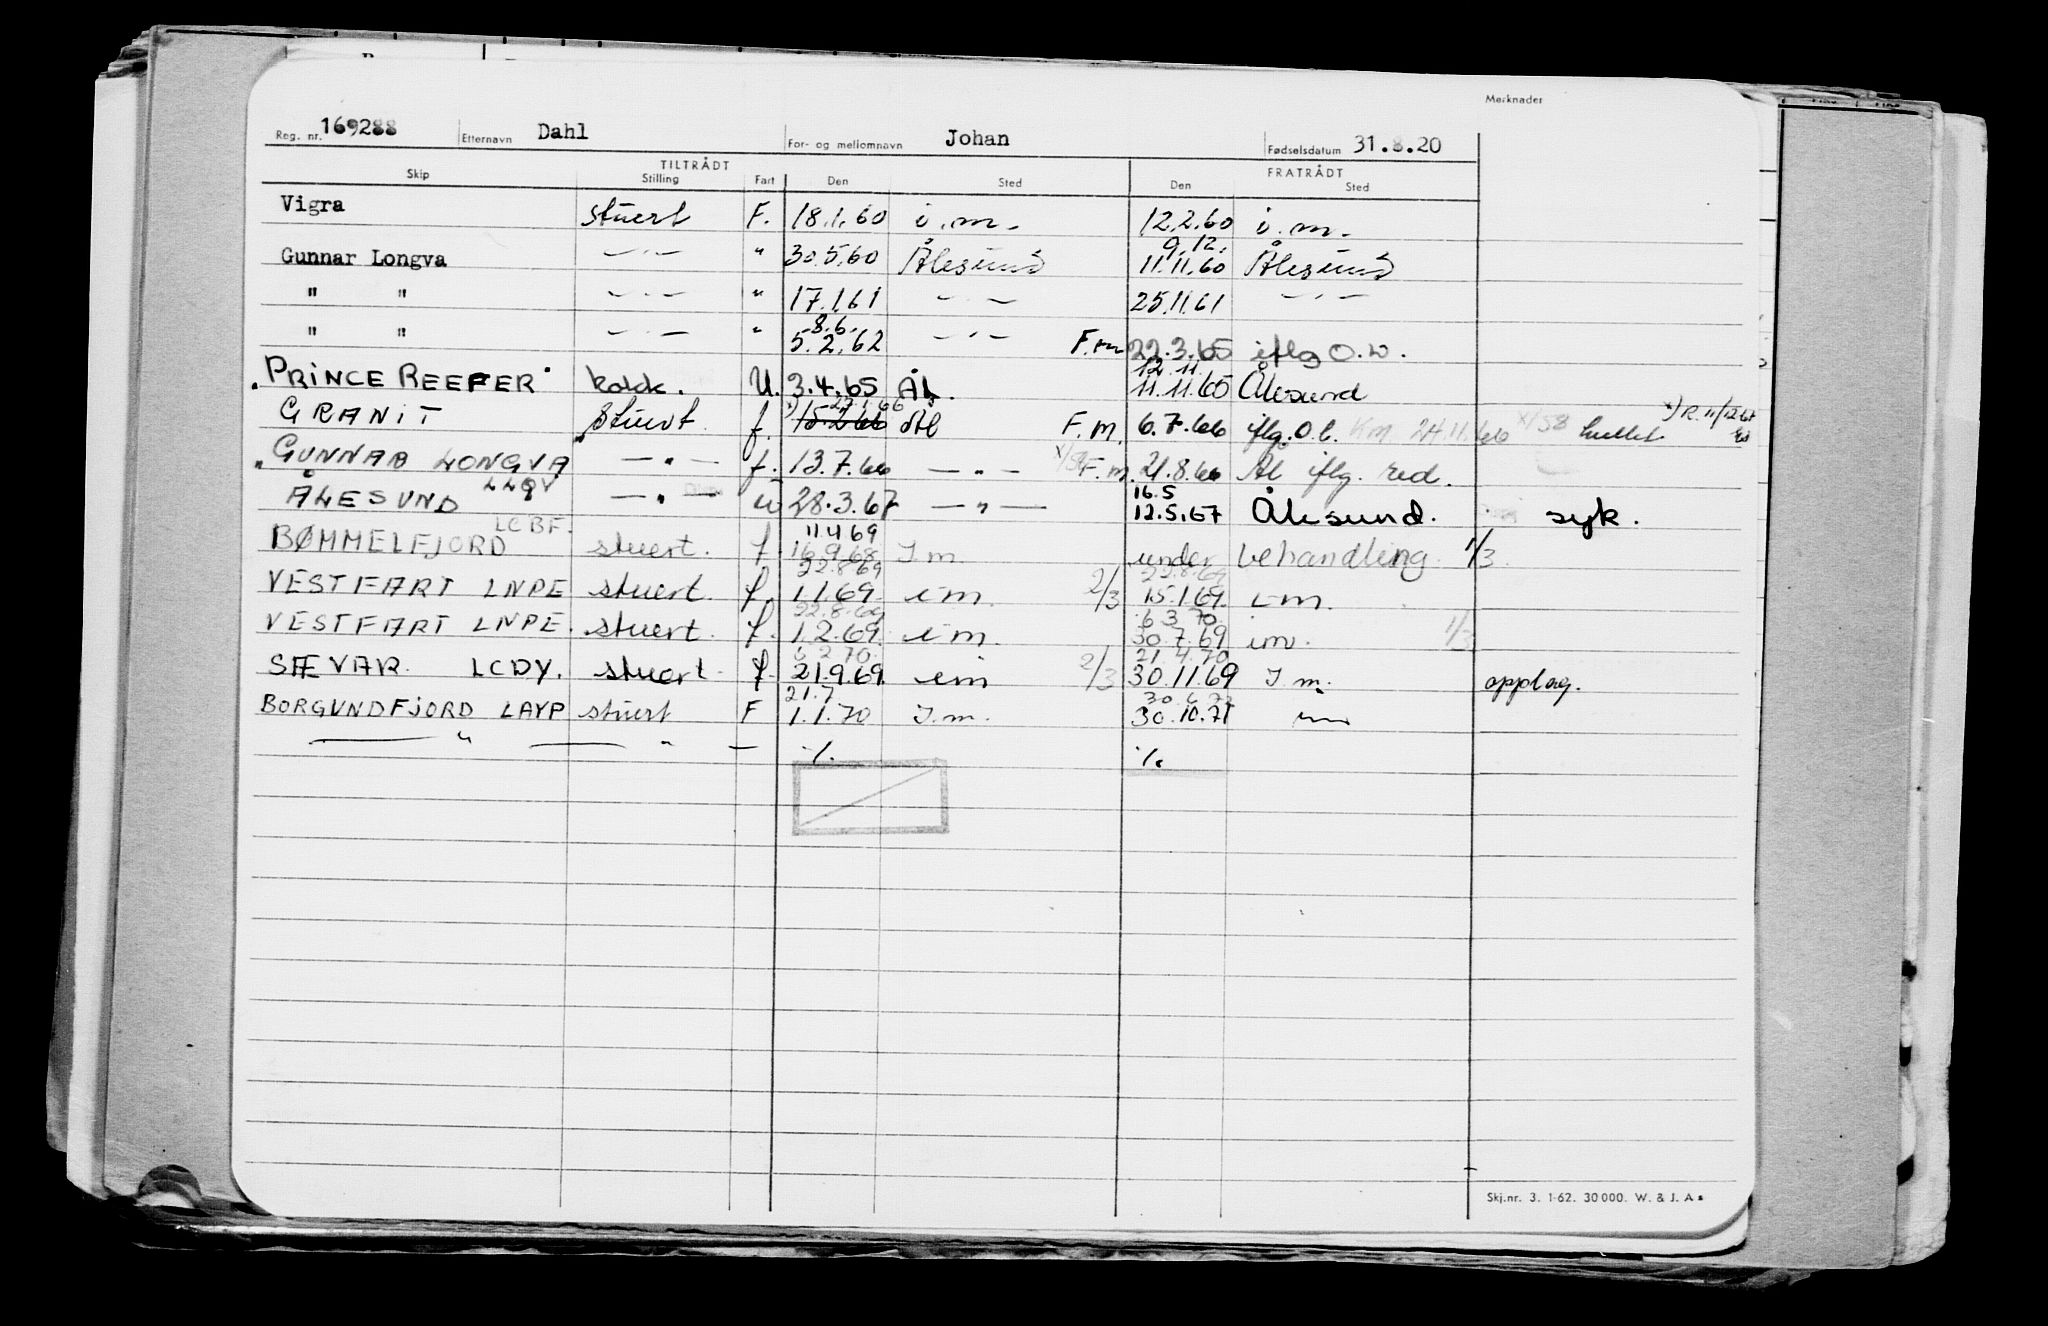 Merknader
Reg. nr. 169288 Etternavn Dahl For- og mellomnavn Johan Fødselsdatum 31.8.20
TILTRÅDT FRATRÅDT
Skip Stilling Fart Den Sted Den Sted
Vigra stuert F. 18.1.60 i.m. 12.2.60 i.m.
9.12.
Gunnar Longva —"— " 30.5.60 Ålesund 11.11.60 Ålesund
" " —"— " 17.1.61 —"— 25.11.61 —"—
8.6.
" " —"— " 5.2.62 —"— F.m 22.3.65 iflg O.w.
12.11.
"PRINCE REEFER" kokk. U. 3.4.65 Ål. 11.11.65 Ålesund
27.1.66 x) R. 11/12 67
GRANIT stuert f. x) 15.2.66 Ål F.M. 6.7.66 iflg. O.b. KM 24.11.66 x/58 hullet
"GUNNAR LONGVA" —"— f. 13.7.66 —"— F.m. 21.8.66 Ål iflg. red.
LLQV 16.5
ÅLESUND —"— u 28.3.67 —"— 12.5.67 Ålesund. syk.
LCBF. 11.4.69
BØMMELFJORD stuert. f. 16.9.68 I.m. under behandling. 1/3.
22.8.69 22.8.69
VESTFART LNPE stuert. f. 1.1.69. im. 2/3 15.1.69. im.
22.8.69 6.3.70.
VESTFART LNPE. stuert. f. 1.2.69. im. 30.7.69 im. 1/3
6.2.70. 21.4.70
SÆVAR. LCDY. stuert. f. 21.9.69. im 2/3 30.11.69 I.m. opplag.
21.7. 30.6.72
BORGUNDFJORD LAYP stuert F 1.1.70 I.m. 30.10.71 im
—"— —"— — ./. ./.
Skj.nr. 3. 1-62. 30 000. W. & J. A s